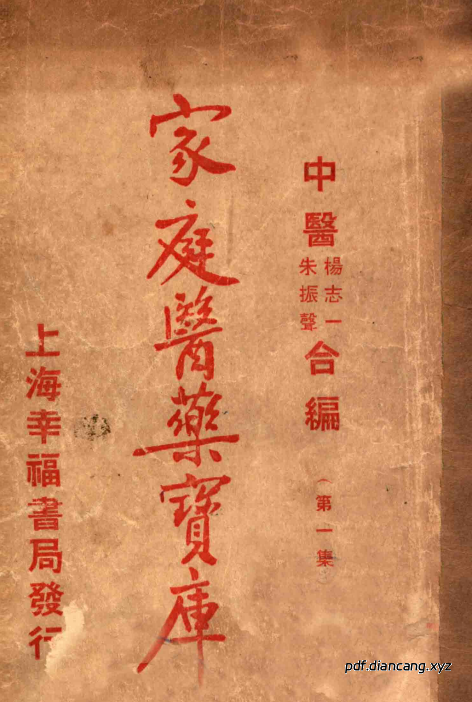 中醫楊志一朱振聲合編
(第一集
家庭醫藥寶庫
上海幸福書局發行
pdf.diancang.xyz